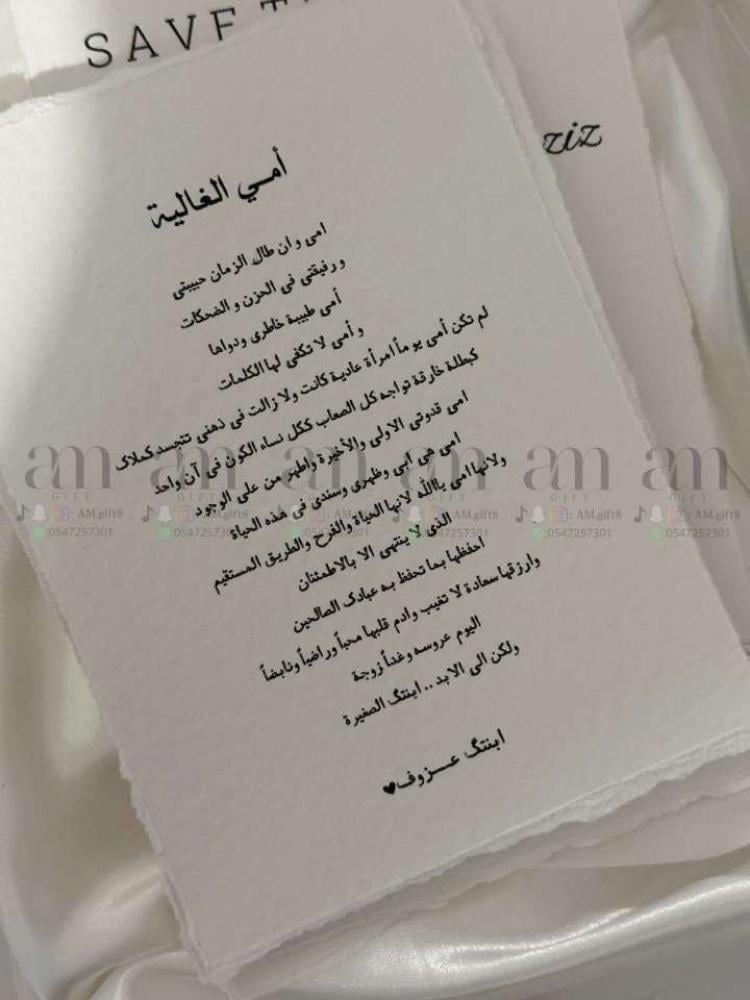 SAVE
ziz
أمي الغالية
امي وان طال الزمان حبيبتي
ورفيقتي في الحزن و الضحكات
أمي طبيبة خاطري ودواها
وأمي لا تكفي لها الكلمات
لم تكن أمي يوماً امرأة عادية كانت ولا زالت في ذهني تتجسد كملاك
كبطلة خارقة تواجه كل الصعاب ككل نساء الكون في آن واحد
امي قدوتي الاولى والأخيرة واطهر من على الوجود
امي هي ابي وظهري وسندي في هذه الحياة
ولانها امي ياالله لانها الحياة والفرح والطريق المستقيم
الذي لا ينتهي الا بالاطمئنان
احفظها بما تحفظ به عبادك الصالحين
وارزقها سعادة لا تغيب وادم قلبها محباً وراضياً ونابضاً
اليوم عروسه وغداً زوجة
ولكن الى الابد .. ابنتگ الصغيرة
ابنتگ عـزوف♥
am am am am am am
GIFT GIFT GIFT GIFT GIFT GIFT
: AM.gift8 : AM.gift8 : AM.gift8 : AM.gift8 : AM.gift8 : AM.gift8
0547257301 0547257301 0547257301 0547257301 0547257301 0547257301